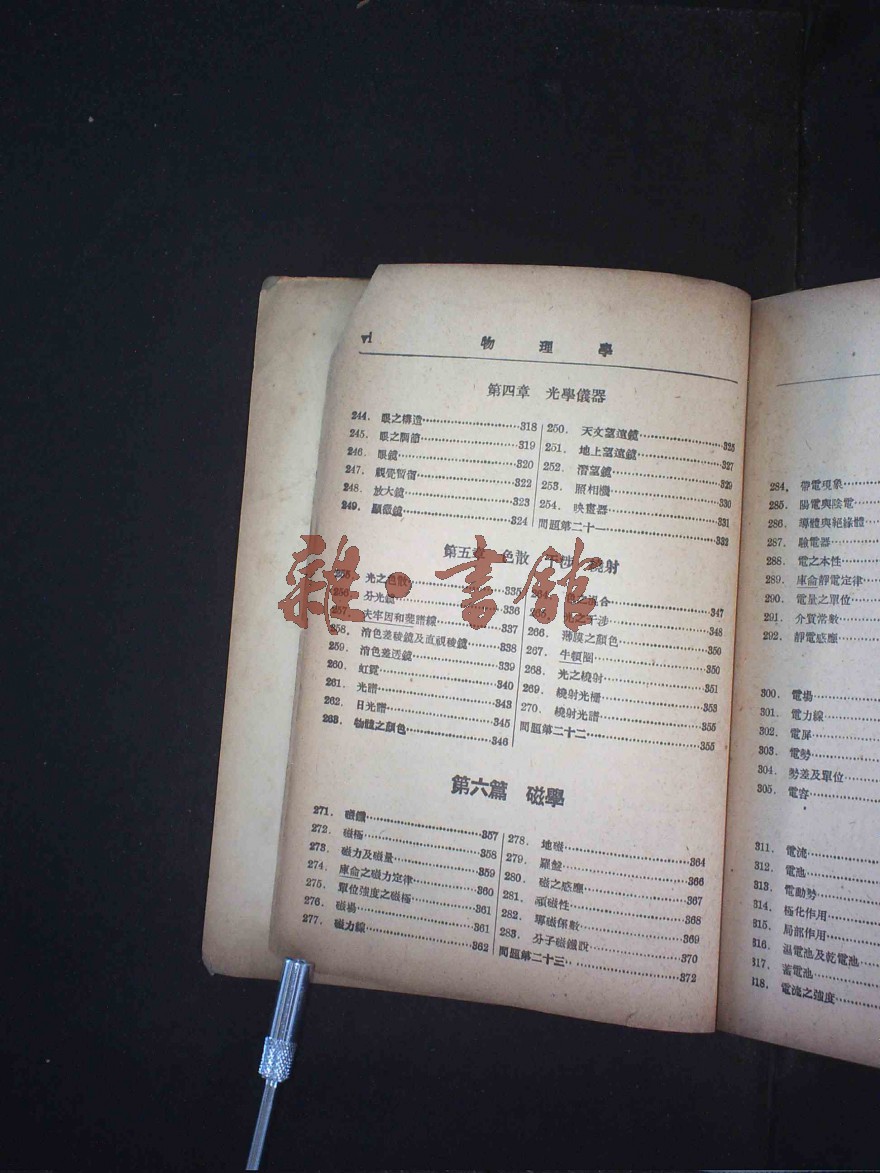 vi
物理學
第四章 光學儀器
244. 眼之構造……318
245. 眼之調節……319
246. 眼鏡……320
247. 視覺暫留……322
248. 放大鏡……323
249. 顯微鏡……324
250. 天文望遠鏡……325
251. 地上望遠鏡……327
252. 潛望鏡……329
253. 照相機……330
254. 映畫器……331
問題第二十一……332
第五章 色散 干涉 繞射
光之色散……335
256. 分光鏡……336
257. 夫牢因和斐譜線……337
258. 消色差稜鏡及直視稜鏡……338
259. 消色差透鏡……339
260. 虹霓……340
261. 光譜……343
262. 日光譜……345
263. 物體之顏色……346
混合……347
光之干涉……348
266. 薄膜之顏色……350
267. 牛頓圈……350
268. 光之繞射……351
269. 繞射光柵……353
270. 繞射光譜……355
問題第二十二……355
第六篇 磁學
271. 磁鐵……357
272. 磁極……358
273. 磁力及磁量……359
274. 庫侖之磁力定律……360
275. 單位強度之磁極……361
276. 磁場……361
277. 磁力線……362
278. 地磁……364
279. 羅盤……366
280. 磁之感應……367
281. 頑磁性……368
282. 導磁係數……369
283. 分子磁鐵說……370
問題第二十三……372
284. 帶電現象
285. 陽電與陰電
286. 導體與絕緣體
287. 驗電器
288. 電之本性
289. 庫侖靜電定律
290. 電量之單位
291. 介質常數
292. 靜電感應
300. 電場
301. 電力線
302. 電屏
303. 電勢
304. 勢差及單位
305. 電容
311. 電流
312. 電池
313. 電動勢
314. 極化作用
315. 局部作用
316. 濕電池及乾電池
317. 蓄電池
318. 電流之強度
雜·書館